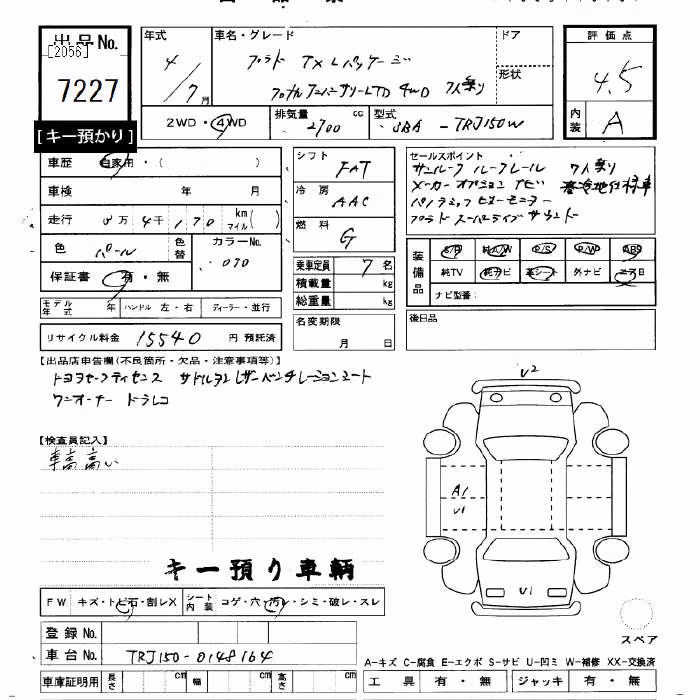 出品No.
[2056]
7227
[キー預かり]
年式
4/7月
車名・グレード
プラド TX Lパッケージ
70thアニバーサリーLTD 4WD 7人乗り
ドア
形状
評価点
4.5
内装
A
2WD・4WD
排気量 2700 cc
型式 3BA-TRJ150W
車歴 自家用・( )
車検 年 月
走行 万 4千 170 km マイル( )
色 パール
色替
カラーNo. 070
保証書 有・無
シフト FAT
冷房 AAC
燃料 G
乗車定員 7名
積載量 kg
総重量 kg
セールスポイント
サンルーフ ルーフレール 7人乗り
メーカーオプションナビ 寒冷地仕様車
パノラミックビューモニター
プラド スーパーライブサウンド
装備品
S/R 純A/W P/S P/W ABS
純TV 純ナビ 革シート 外ナビ エアB
ナビ型番:
モデル年式 年
ハンドル 左・右
ディーラー・並行
リサイクル料金 15540 円 預託済
名変期限
月 日
後日品
【出品店申告欄(不良箇所・欠品・注意事項等)】
トヨタセーフティセンス サドルタン レザーベンチレーションシート
ワンオーナー ドラレコ
【検査員記入】
車高高い
U2
A1
U1
U1
キー預り車輌
FW キズ・トビ石・割レX
シート内装 コゲ・穴・汚レ・シミ・破レ・スレ
スペア
登録No.
車台No. TRJ150-0148164
A-キズ C-腐食 E-エクボ S-サビ U-凹ミ W-補修 XX-交換済
車庫証明用 長さ cm 幅 cm 高さ cm
工具 有・無 ジャッキ 有・無